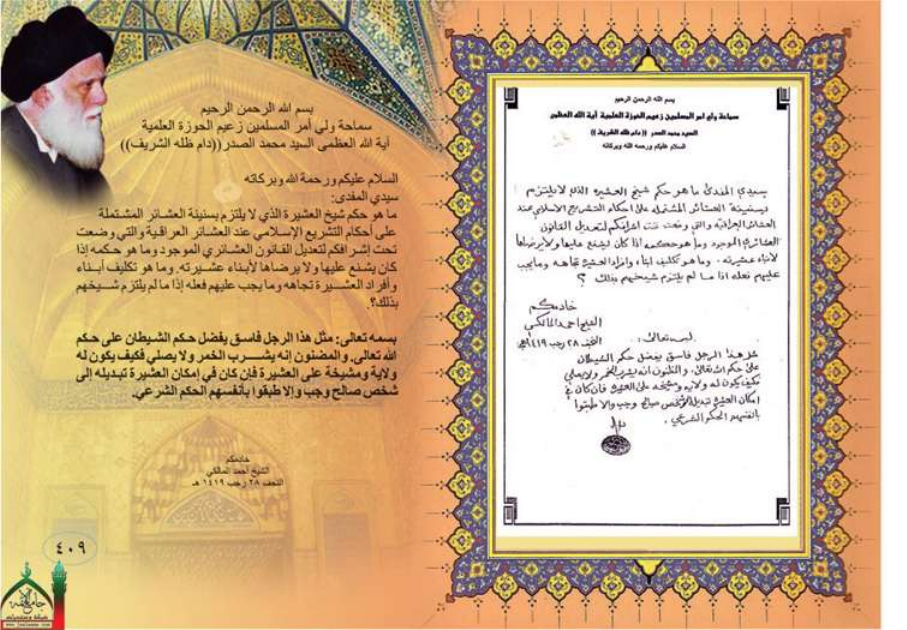 بسم الله الرحمن الرحيم
سماحة ولي أمر المسلمين زعيم الحوزة العلمية
آية الله العظمى السيد محمد الصدر((دام ظله الشريف))
السلام عليكم ورحمة الله وبركاته
سيدي المفدى:
ما هو حكم شيخ العشيرة الذي لا يلتزم بسنينة العشائر المشتملة
على أحكام التشريع الإسلامي عند العشائر العراقية والتي وضعت
تحت إشرافكم لتعديل القانون العشائري الموجود وما هو حكمه إذا
كان يشنع عليها ولا يرضاها لأبناء عشيرته. وما هو تكليف أبناء
وأفراد العشيرة تجاهه وما يجب عليهم فعله إذا ما لم يلتزم شيخهم
بذلك؟
بسمه تعالى: مثل هذا الرجل فاسق يفضل حكم الشيطان على حكم
الله تعالى. والمضنون إنه يشرب الخمر ولا يصلي فكيف يكون له
ولاية ومشيخة على العشيرة فإن كان في إمكان العشيرة تبديله إلى
شخص صالح وجب وإلا طبقوا بأنفسهم الحكم الشرعي.
خادمكم
الشيخ أحمد المالكي
النجف ٢٨ رجب ١٤١٩ هـ
٤٠٩
بسم الله الرحمن الرحيم
سماحة ولي أمر المسلمين زعيم الحوزة العلمية آية الله العظمى
السيد محمد الصدر ((دام ظله الشريف))
السلام عليكم ورحمة الله وبركاته
سيدي المفدى ما هو حكم شيخ العشيرة الذي لا يلتزم
بسنينة العشائر المشتملة على احكام التشريع الاسلامي عند
العشائر العراقية والتي وضعت تحت اشرافكم لتعديل القانون
العشائري الموجود وما هو حكمه اذا كان يشنع عليها ولا يرضاها
لأبناء عشيرته. وما هو تكليف ابناء وافراد العشيرة تجاهه وما يجب
عليهم فعله اذا ما لم يلتزم شيخهم بذلك ؟
خادمكم
الشيخ احمد المالكي
النجف ٢٨ رجب ١٤١٩هـ
بسمه تعالى:
مثل هذا الرجل فاسق يفضل حكم الشيطان
على حكم الله تعالى. والمظنون انه يشرب الخمر ولا يصلي
فكيف يكون له ولاية ومشيخة على العشيرة فان كان في
امكان العشيرة تبديله الى شخص صالح وجب والا طبقوا
بانفسهم الحكم الشرعي.